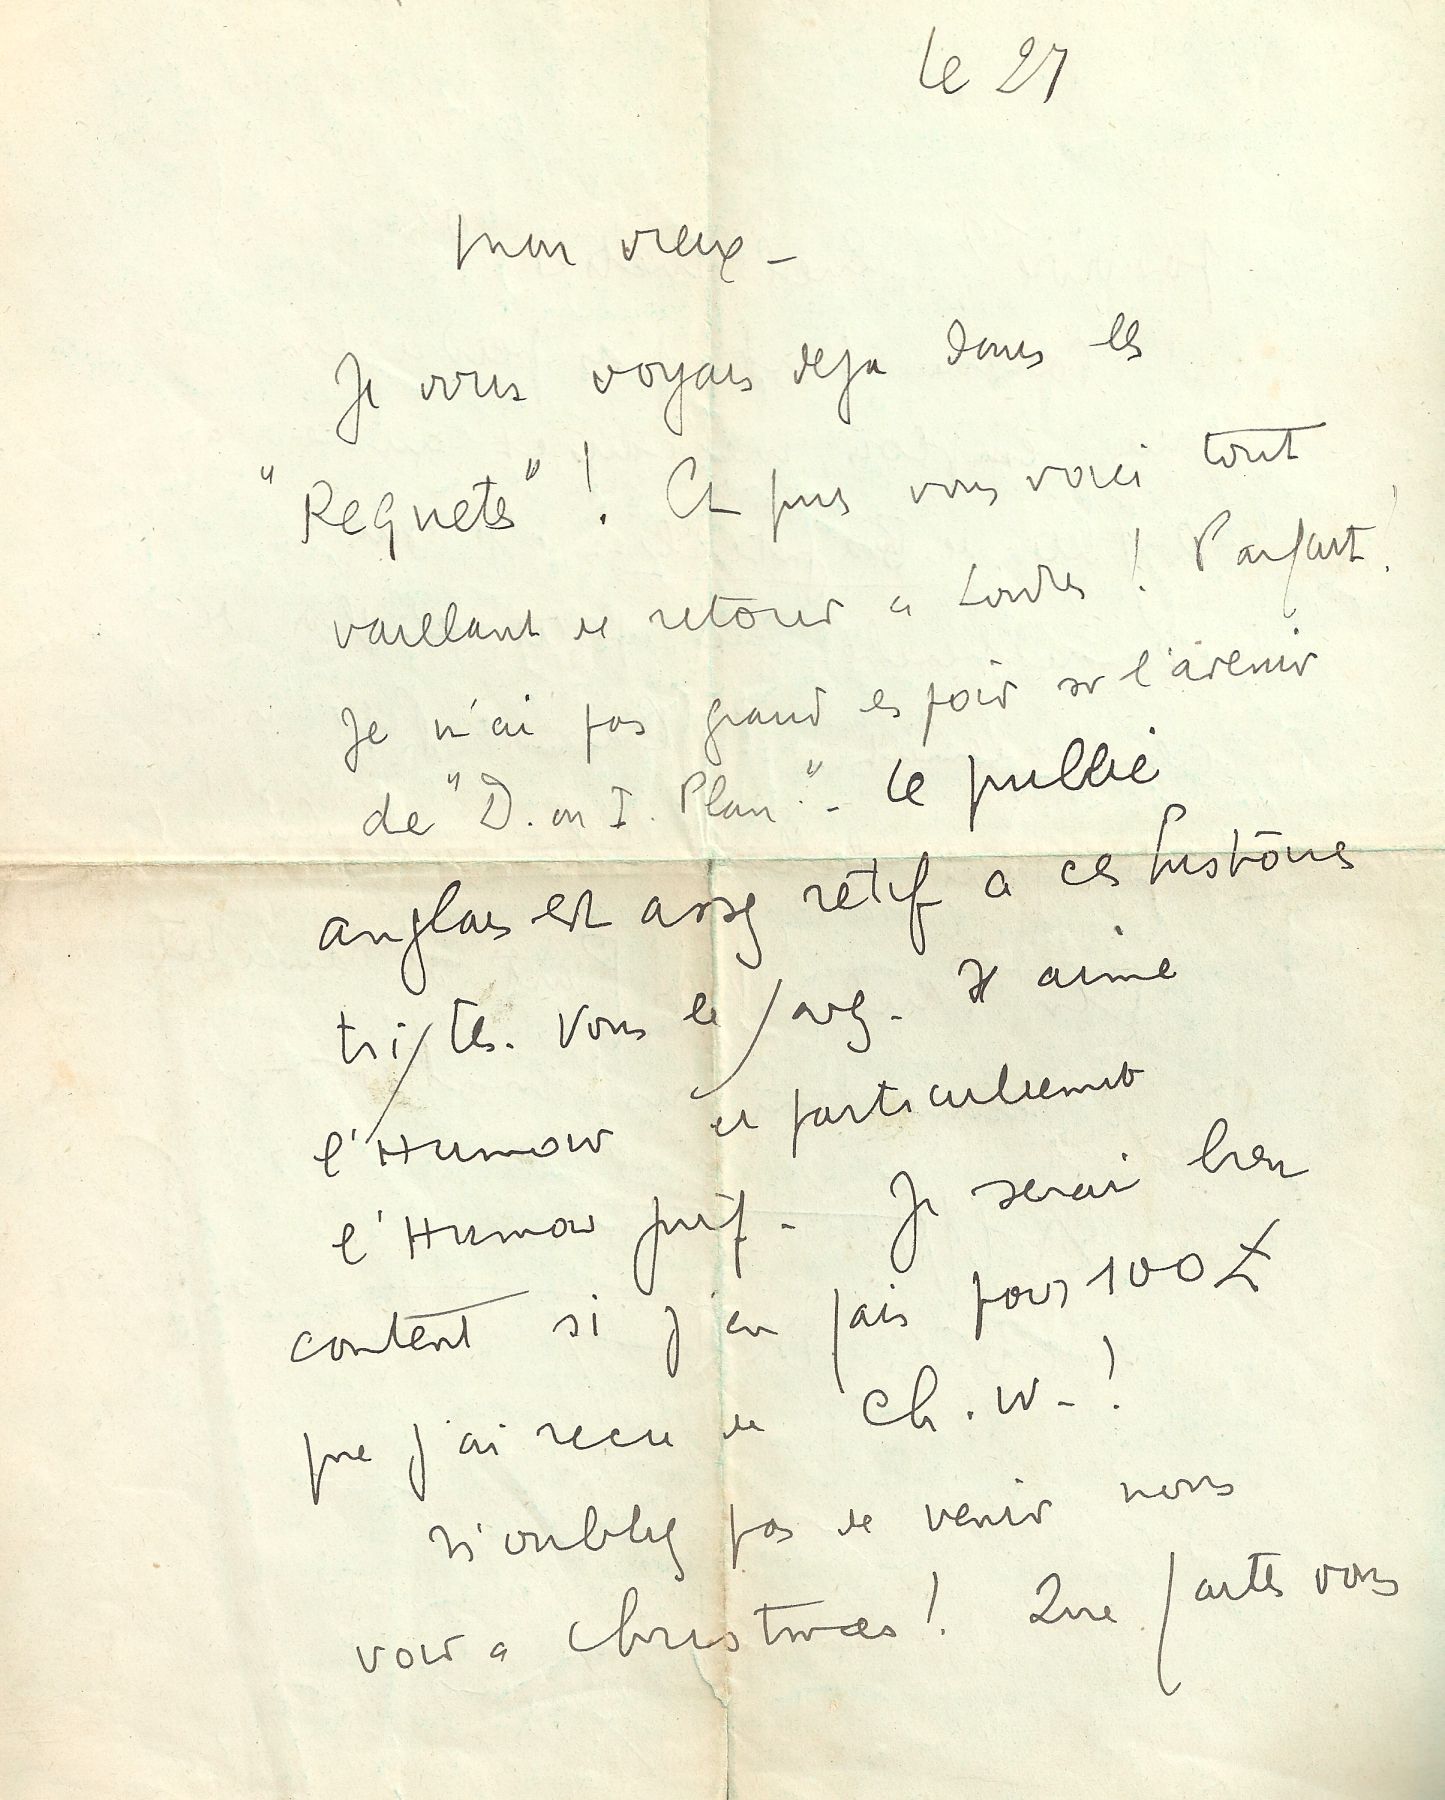 le 27
mon vieux -
Je vous voyais deja dans les
"Requetes" ! Et puis vous voici tout
vaillant de retour a Londres ! Parfait !
Je n'ai pas grand espoir sur l'avenir
de "D. on I. Plan." - Le public
anglais est assez rétif a ces histoires
tristes. Vous le savez. Il aime
l'Humour et particulierement
l'Humour juif - Je serai bien
content si j'en fais pour 100 £
que j'ai recu de Ch. W. !
N'oubliez pas de venir nous
voir a Christmas ! Que faites vous